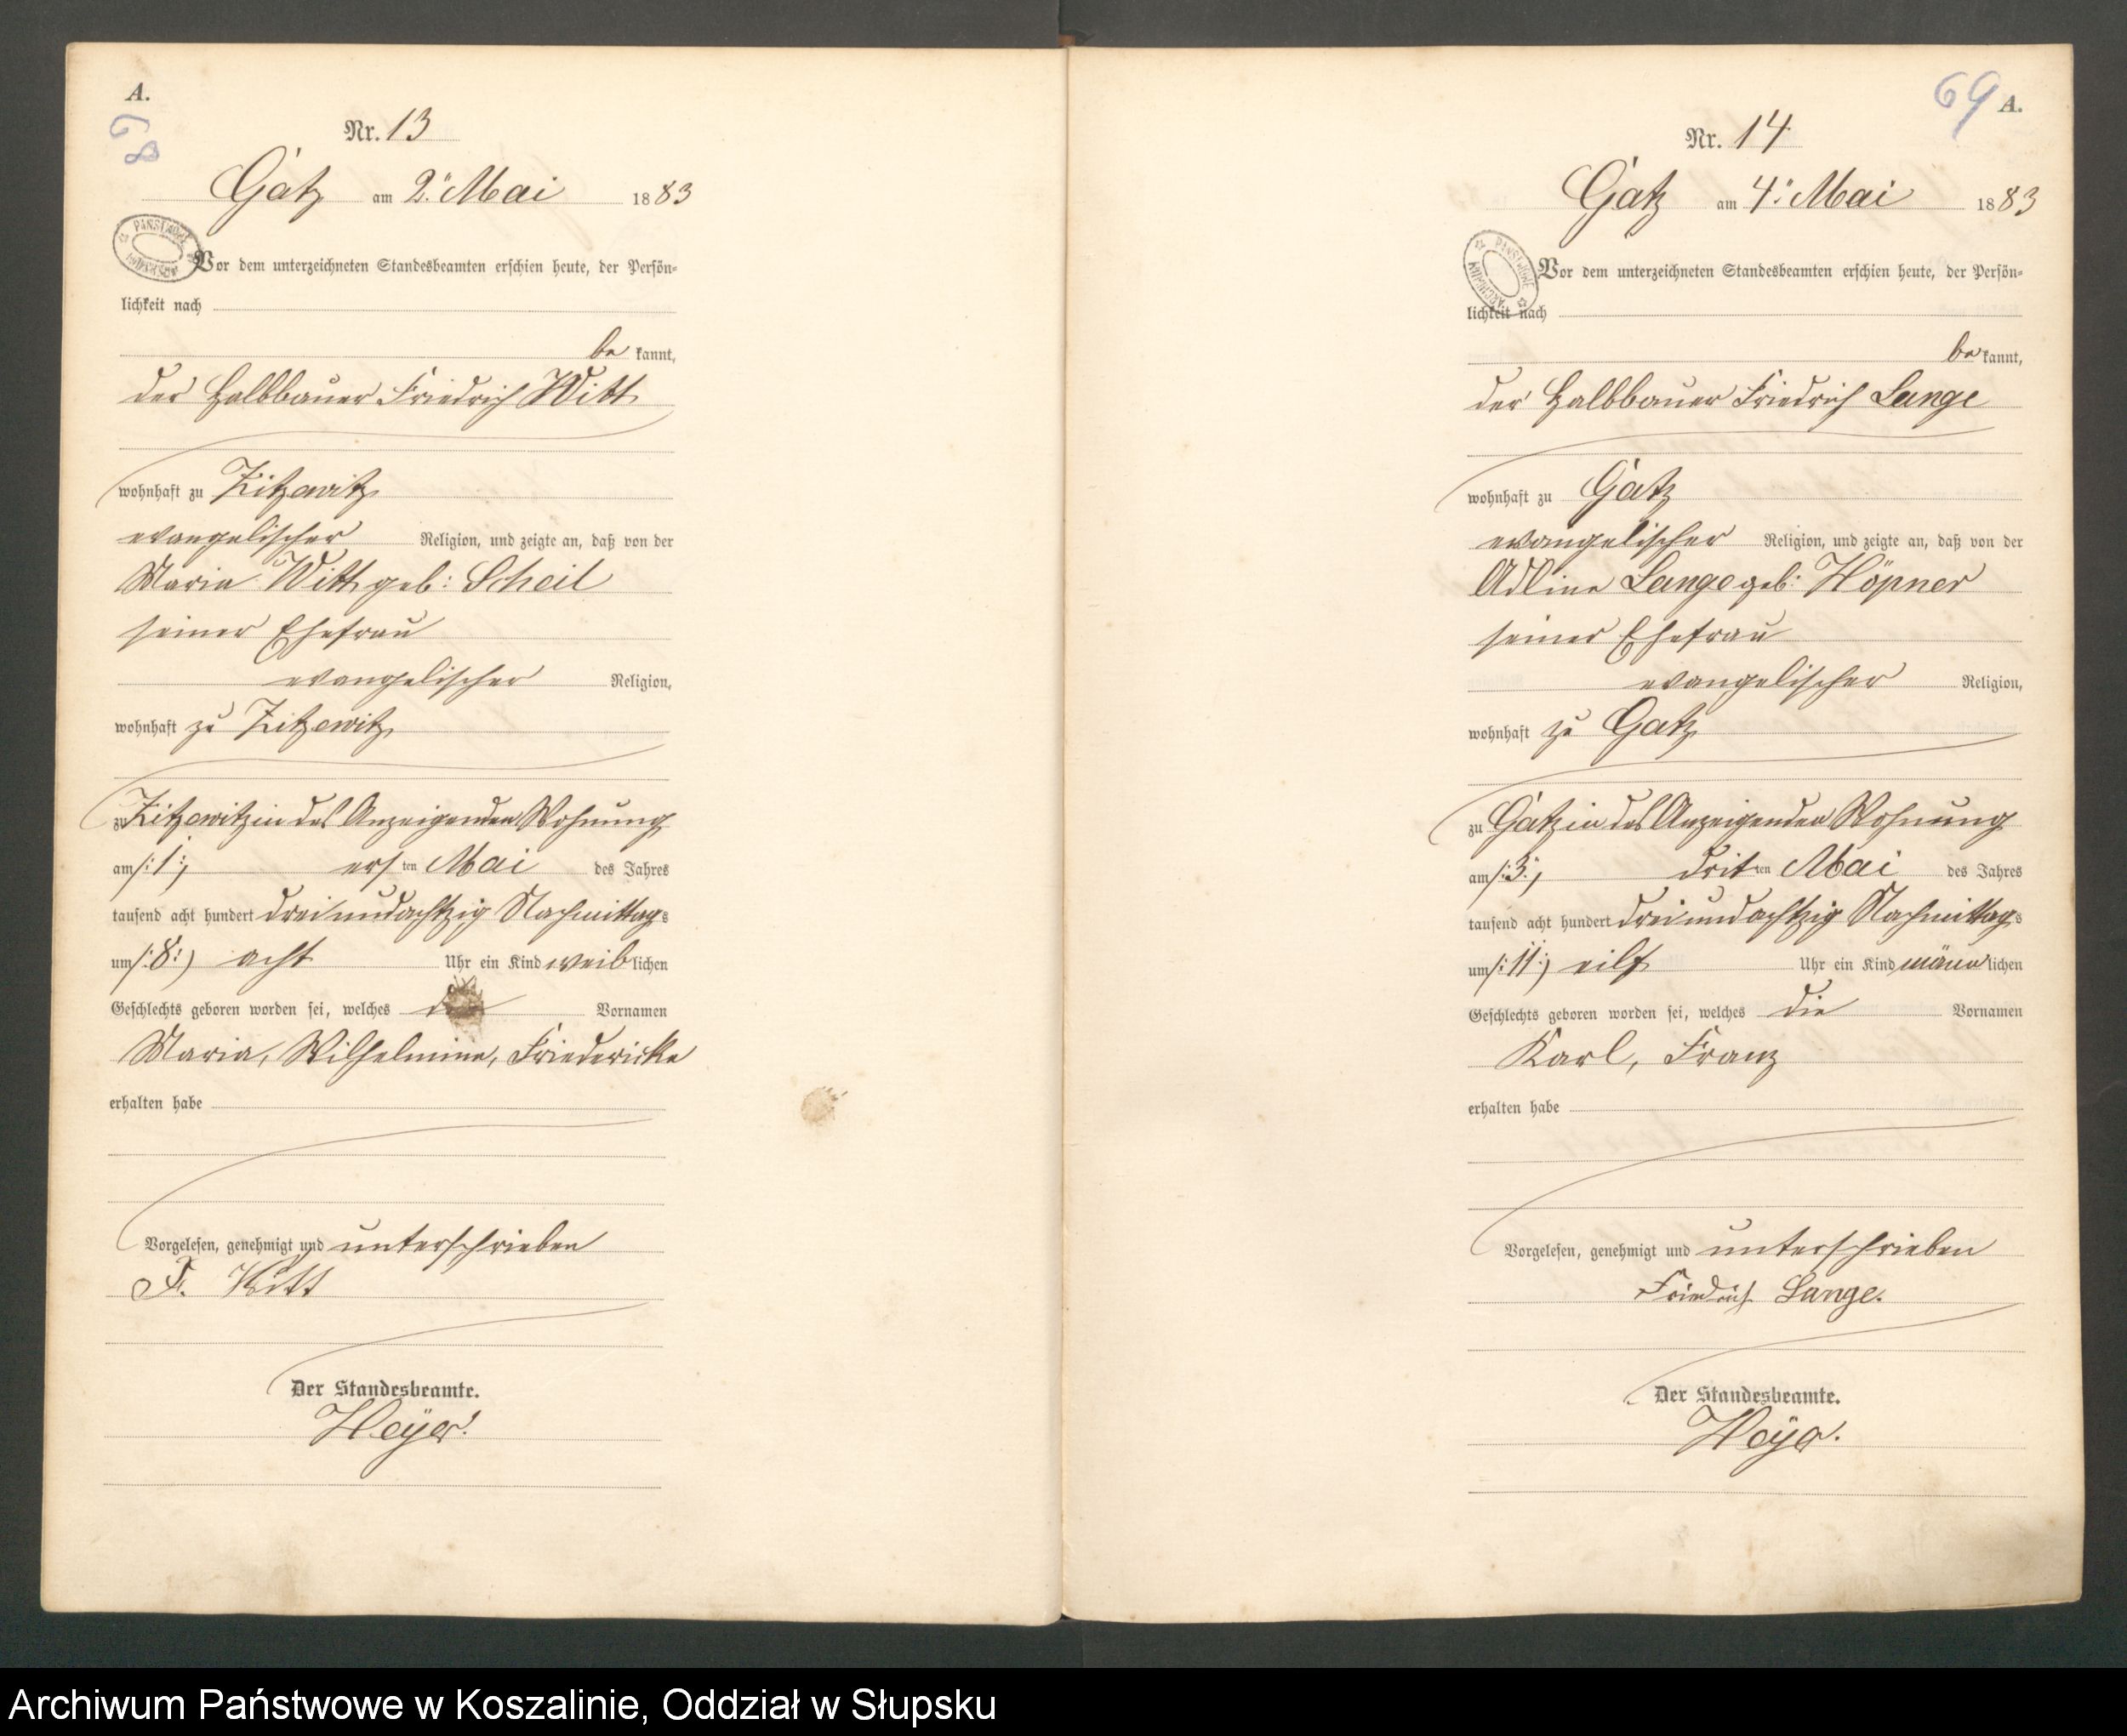 A.
68
Nr. 13
Gatz am 2ten Mai 1883
PAŃSTWOWE ARCHIWUM
Vor dem unterzeichneten Standesbeamten erschien heute, der Persön-
lichkeit nach
be kannt,
der Halbbauer Friedrich Witt
wohnhaft zu Zitzewitz
evangelischer Religion, und zeigte an, daß von der
Maria Witt geb: Scheil
seiner Ehefrau
evangelischer Religion,
wohnhaft zu Zitzewitz
zu Zitzewitz in des Anzeigenden Wohnung
am /:1:/ ersten Mai des Jahres
tausend acht hundert dreiundachtzig Nachmittags
um /:8:/ acht Uhr ein Kind weiblichen
Geschlechts geboren worden sei, welches die Vornamen
Maria, Wilhelmine, Friedericke
erhalten habe
Vorgelesen, genehmigt und unterschrieben
F. Witt
Der Standesbeamte.
Heyer.
69 A.
Nr. 14
Gatz am 4ten Mai 1883
PAŃSTWOWE ARCHIWUM
Vor dem unterzeichneten Standesbeamten erschien heute, der Persön-
lichkeit nach
be kannt,
der Halbbauer Friedrich Lange
wohnhaft zu Gatz
evangelischer Religion, und zeigte an, daß von der
Adline Lange geb: Höpner
seiner Ehefrau
evangelischer Religion,
wohnhaft zu Gatz
zu Gatz in des Anzeigenden Wohnung
am /:3:/ dritten Mai des Jahres
tausend acht hundert dreiundachtzig Nachmittags
um /:11:/ eilf Uhr ein Kind männlichen
Geschlechts geboren worden sei, welches die Vornamen
Karl, Franz
erhalten habe
Vorgelesen, genehmigt und unterschrieben
Friedrich Lange.
Der Standesbeamte.
Heyer.
Archiwum Państwowe w Koszalinie, Oddział w Słupsku